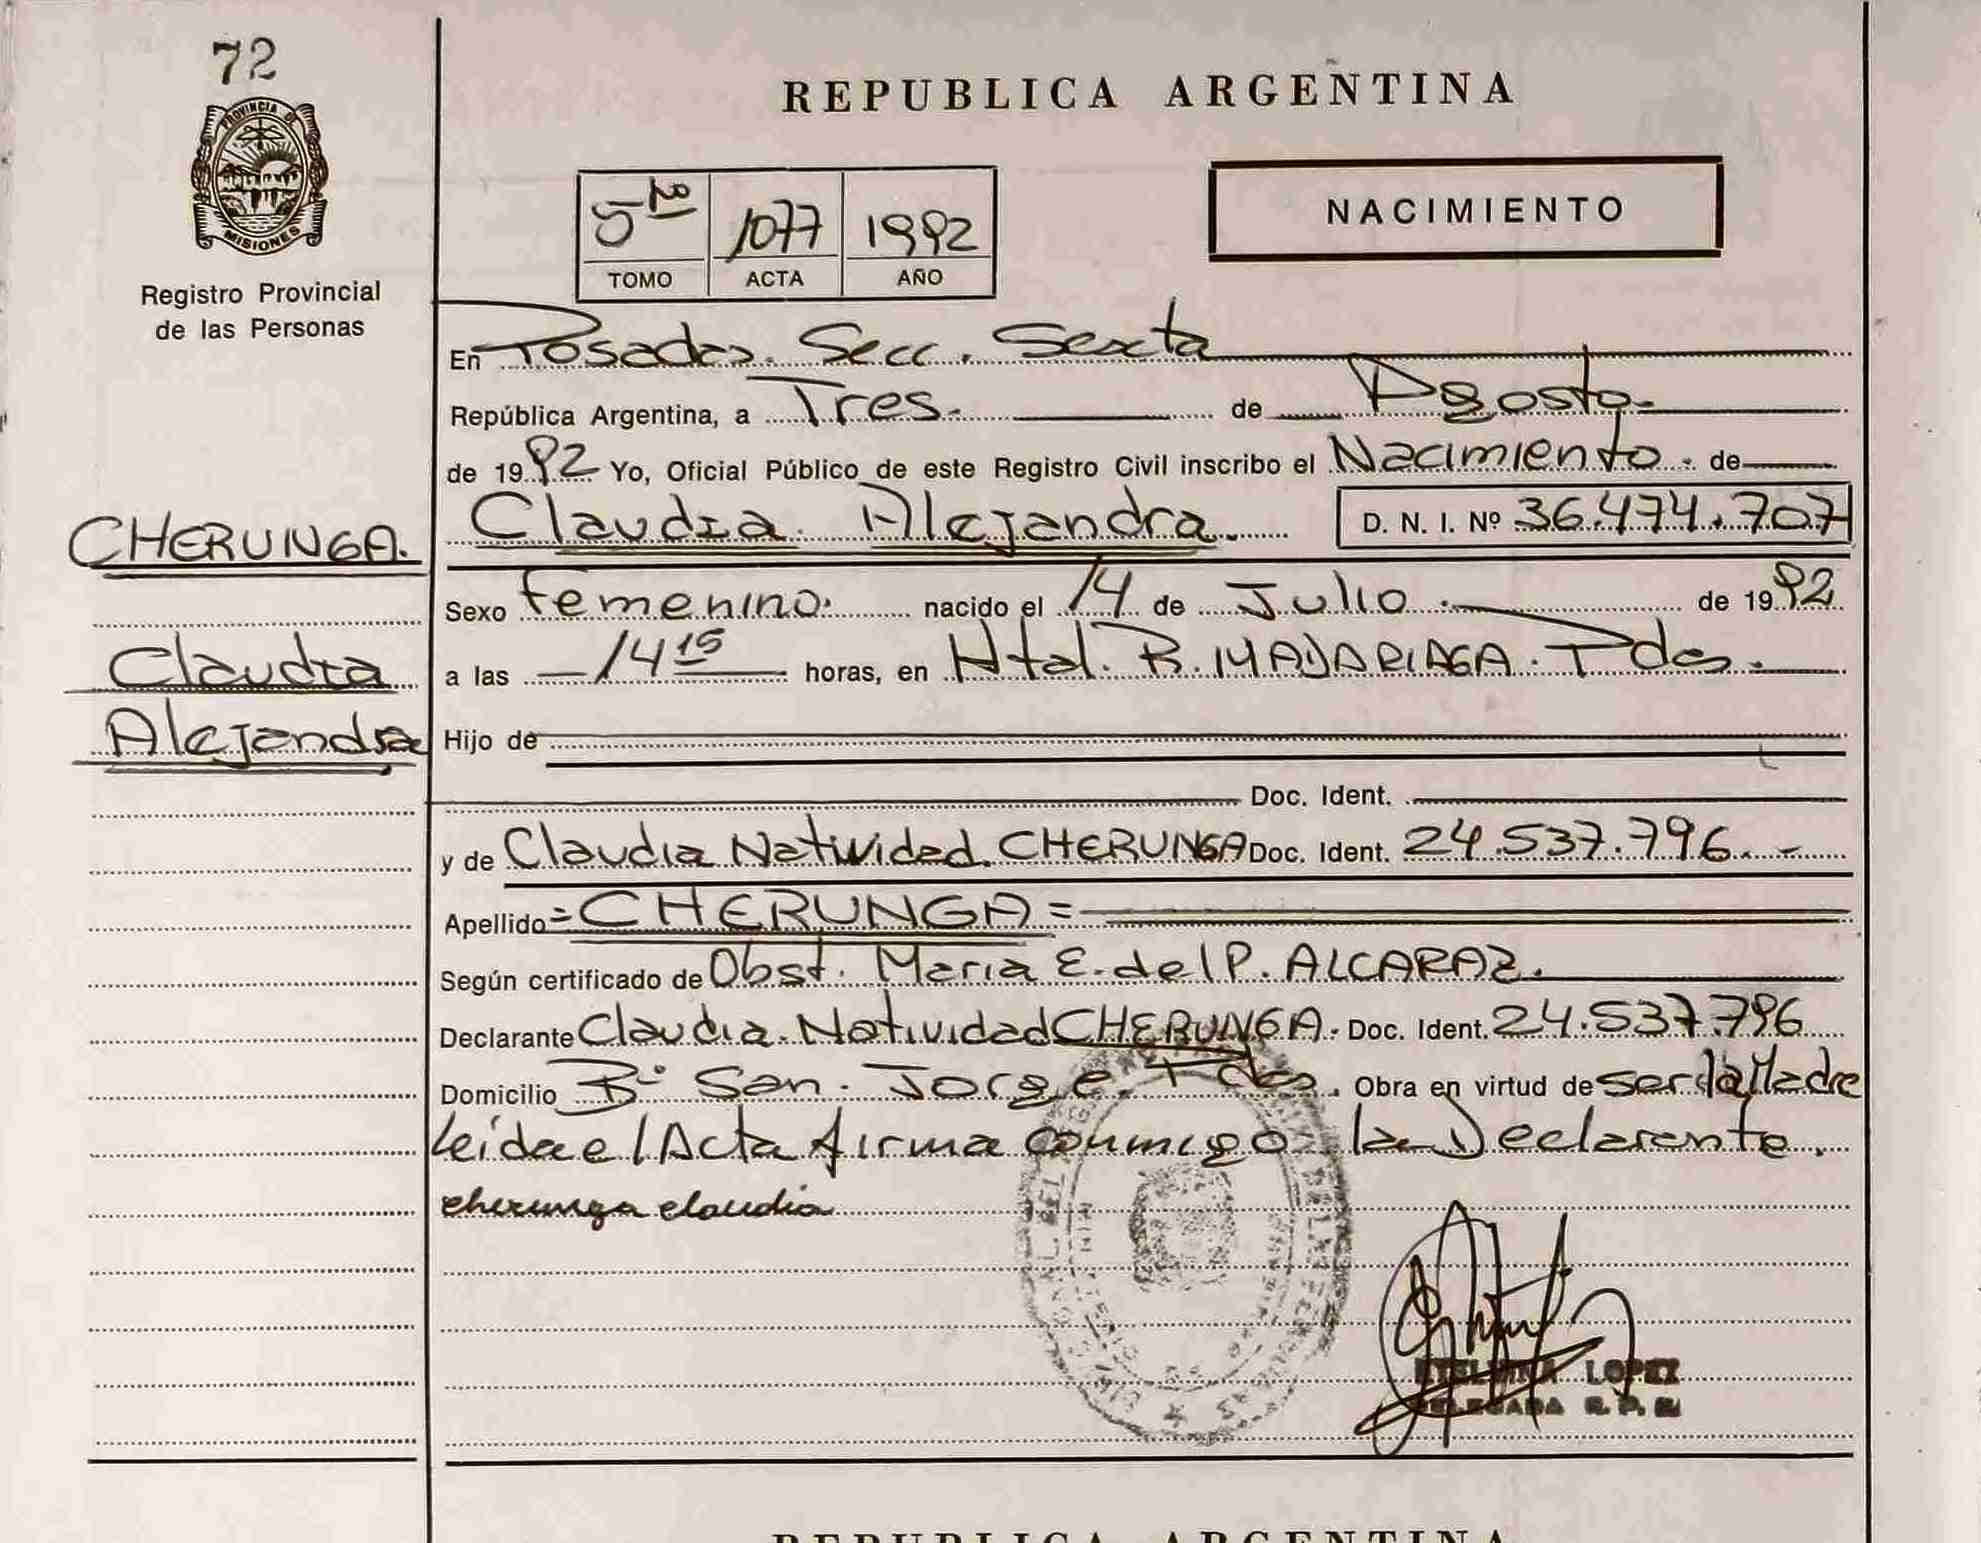 72
REPUBLICA ARGENTINA
PROVINCIA DE
MISIONES
Registro Provincial
de las Personas
5to 1077 1992
TOMO ACTA AÑO
NACIMIENTO
En Posadas. Secc. Sexta
República Argentina, a Tres. de Agosto.
de 1992 Yo, Oficial Público de este Registro Civil inscribo el Nacimiento. de
Claudia Alejandra. D. N. I. Nº 36.474.707
CHERUNGA.
Claudia
Alejandra
Sexo femenino. nacido el 14 de Julio. de 1992
a las 14 15 horas, en Htal. R. MADARIAGA. Pdas.
Hijo de
Doc. Ident.
y de Claudia Natividad. CHERUNGA Doc. Ident. 24.537.796.-
Apellido =CHERUNGA=
Según certificado de Obst. Maria E. del P. ALCARAZ.
Declarante Claudia. Natividad CHERUNGA. Doc. Ident. 24.537.796
Domicilio Bº San. Jorge. Pdas. Obra en virtud de ser la Madre
Leida el Acta firma conmigo la Declarante.
cherunga claudia
LOPEZ
DELEGADA R. P.
REPUBLICA ARGENTINA